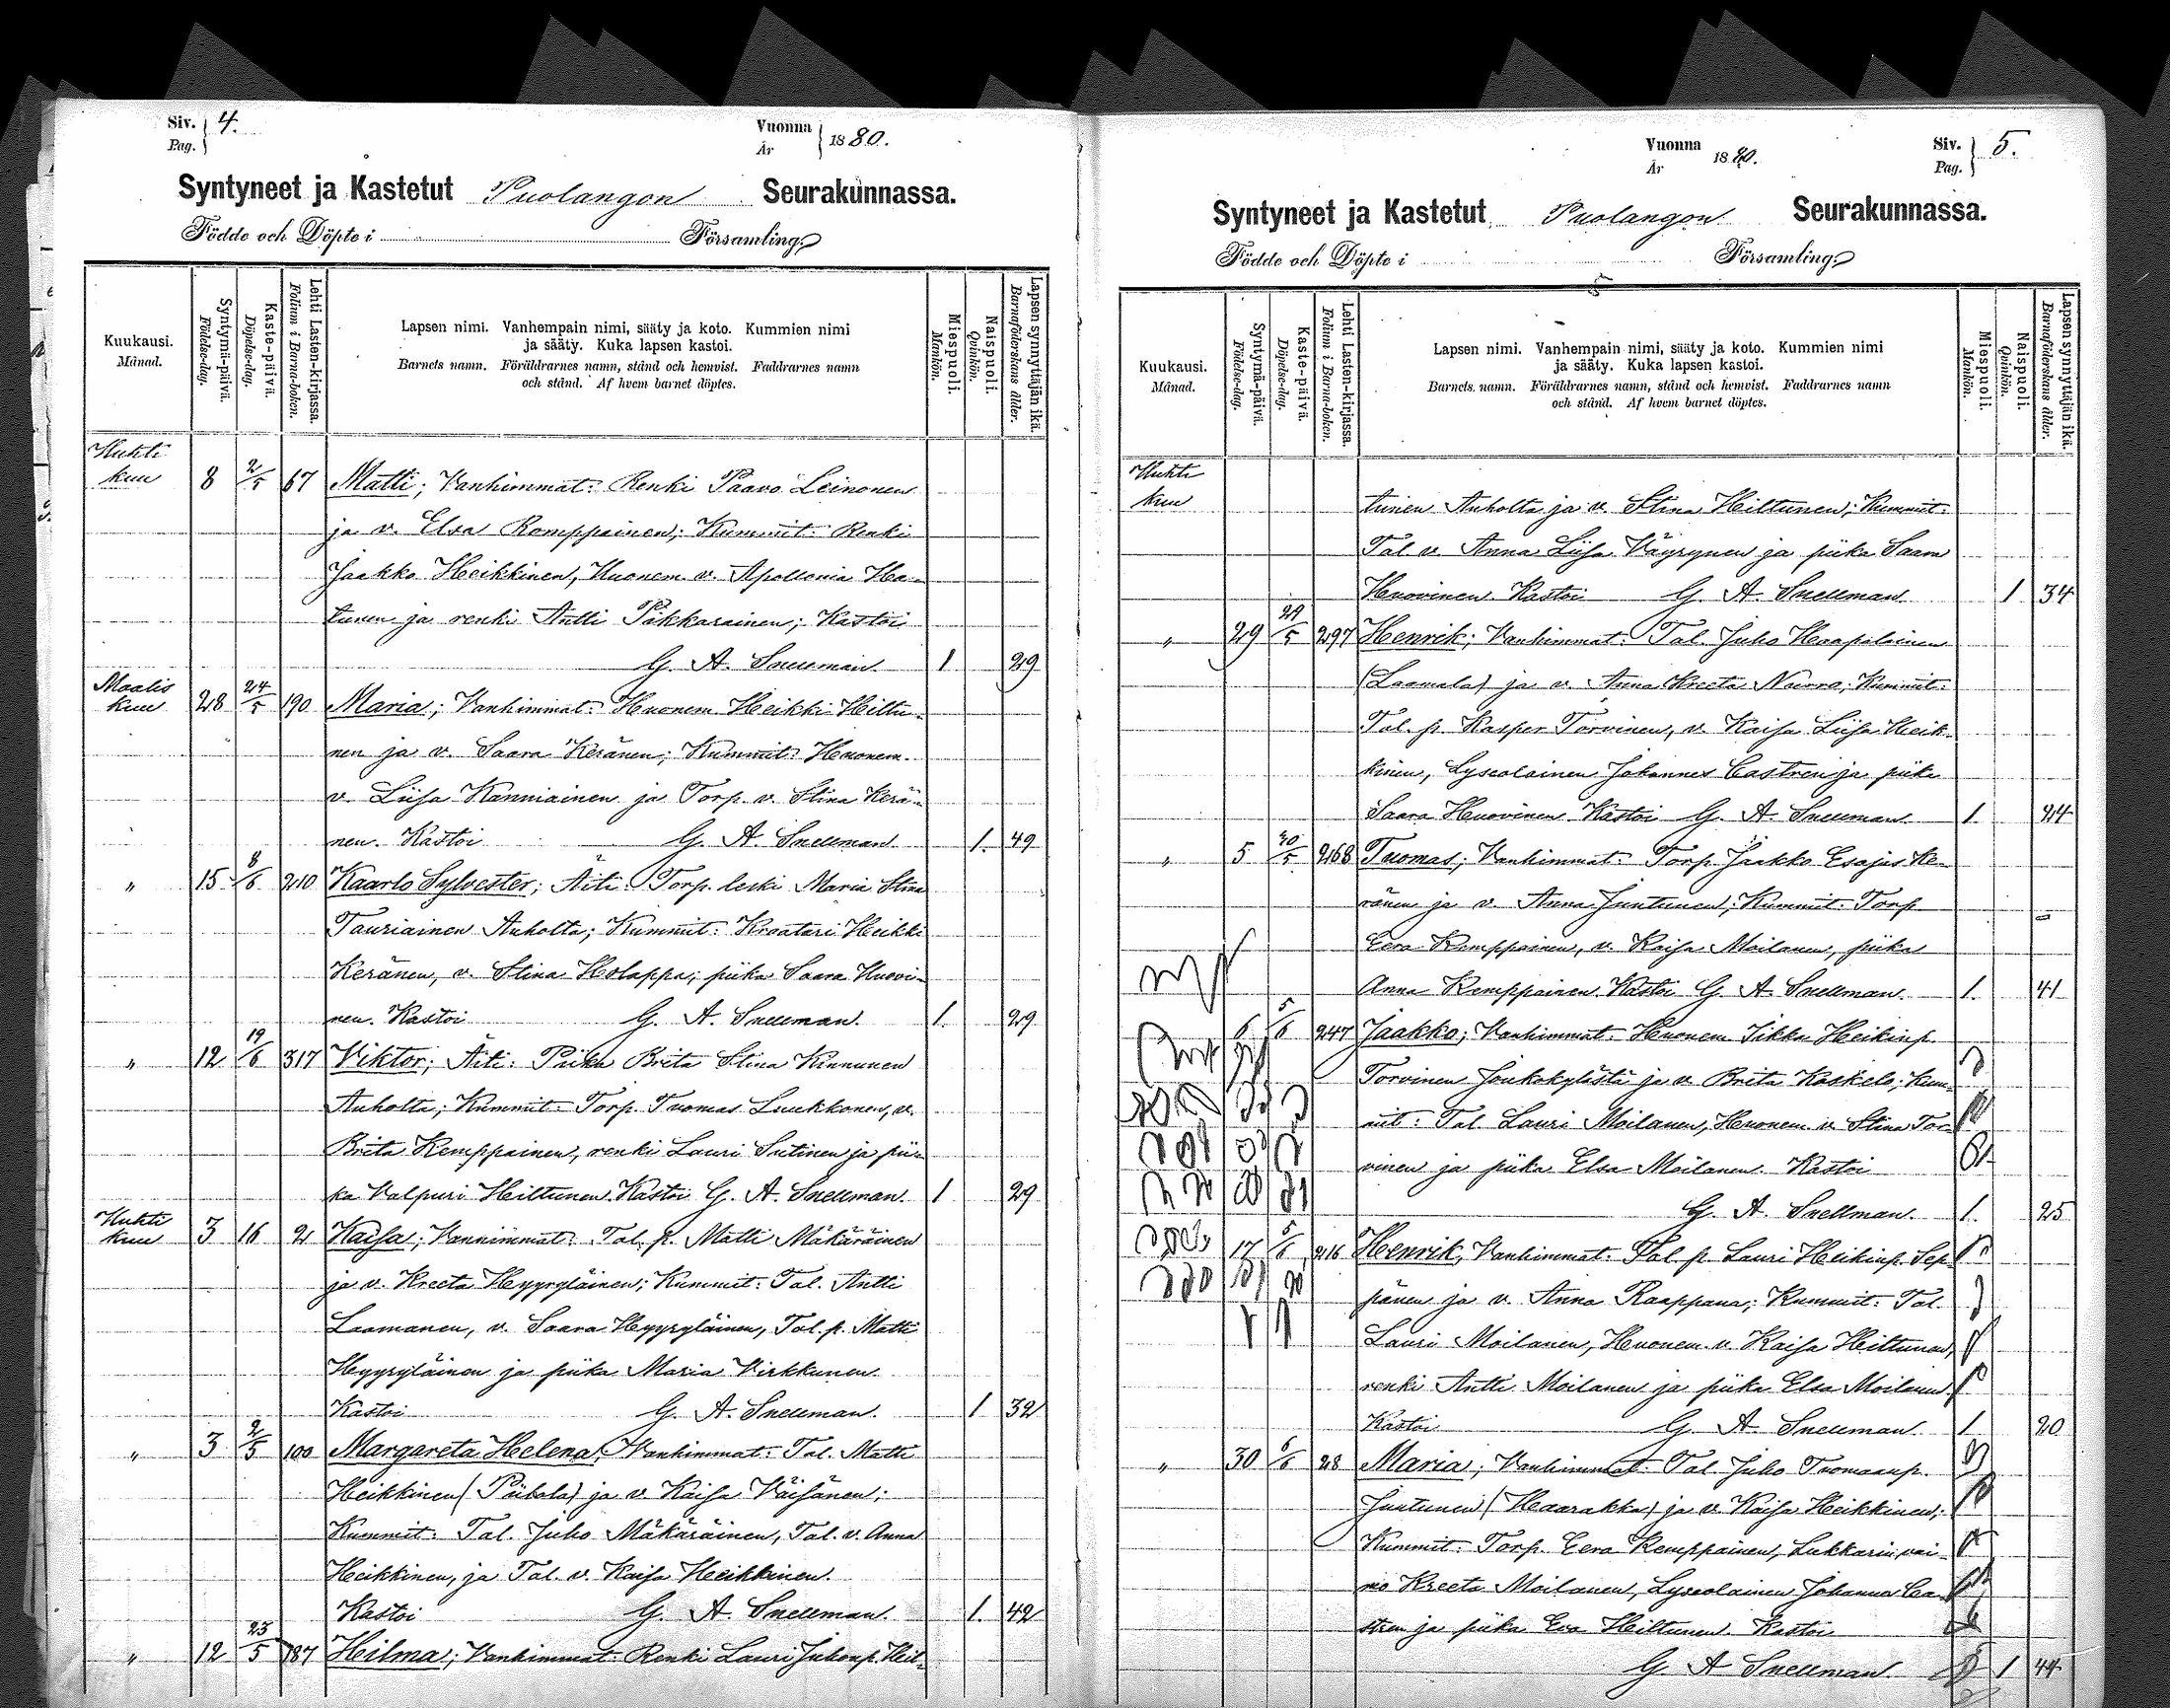 Siv. 4.
Pag.
Vuonna 1880.
År
Syntyneet ja Kastetut Puolangon Seurakunnassa.
Födde och Döpte i Församling.
Kuukausi.
Månad.
Syntymä-päivä.
Födelse-dag.
Kaste-päivä.
Döpelse-dag.
Lehti Lasten-kirjassa.
Folium i Barna-boken.
Lapsen nimi. Vanhempain nimi, sääty ja koto. Kummien nimi
ja sääty. Kuka lapsen kastoi.
Barnets namn. Föräldrarnes namn, stånd och hemvist. Faddrarnes namn
och stånd. Af hvem barnet döptes.
Miespuoli.
Mankön.
Naispuoli.
Qvinkön.
Lapsen synnyttäjän ikä.
Barnaföderskans ålder.
Huhti
kuu 8 2/5 67 Matti; Vanhimmat: Renki Paavo Leinonen
ja v. Elsa Romppainen; Kummit: Renki
Jaakko Heikkinen, Huonem. v. Apollonia Ha-
tunen ja renki Antti Pikkarainen; Kastoi
G. A. Snellman. 1 29
Maalis
kuu 28 24/5 190 Maria; Vanhimmat: Huonem Heikki Hiltu-
nen ja v. Saara Keränen; Kummit: Huonem.
v. Liisa Kanniainen ja Torp. v. Stina Kerä-
nen. Kastoi G. A. Snellman. 1. 49
" 15 8/6 210 Kaarlo Sylvester; Äiti: Torp. leski Maria Stina
Tauriainen Auholta; Kummit: Kraatari Heikki
Keränen, v. Stina Holappa; piika Saara Huovi-
nen. Kastoi G. A. Snellman. 1. 29
" 12 19/6 317 Viktor; Äiti: Piika Brita Stina Kinnunen
Auholta; Kummit: Torp. Tuomas Luukkonen, v.
Brita Kemppainen, renki Lauri Sutinen ja pii-
ka Valpuri Hiltunen. Kastoi G. A. Snellman. 1 29
Huhti
kuu 3 16 2 Kaisa; Vanhimmat: Tal. p. Matti Mäkäräinen
ja v. Kreeta Hyyryläinen; Kummit: Tal. Antti
Laamanen, v. Saara Hyyryläinen, Tal. p. Matti
Hyyryläinen ja piika Maria Virkkunen.
Kastoi G. A. Snellman. 1 32
" 3 2/5 100 Margareta Helena; Vanhimmat: Tal. Matti
Heikkinen (Piibola) ja v. Kaisa Väisänen;
Kummit: Tal. Juho Mäkäräinen, Tal. v. Anna
Heikkinen, ja Tal. v. Kaisa Heikkinen.
Kastoi G. A. Snellman. 1. 42
" 12 23/5 187 Heilma; Vanhimmat: Renki Lauri Juhonp. Heil-
Vuonna 1880.
År
Siv. 5.
Pag.
Syntyneet ja Kastetut Puolangon Seurakunnassa.
Födde och Döpte i Församling.
Kuukausi.
Månad.
Syntymä-päivä.
Födelse-dag.
Kaste-päivä.
Döpelse-dag.
Lehti Lasten-kirjassa.
Folium i Barna-boken.
Lapsen nimi. Vanhempain nimi, sääty ja koto. Kummien nimi
ja sääty. Kuka lapsen kastoi.
Barnets namn. Föräldrarnes namn, stånd och hemvist. Faddrarnes namn
och stånd. Af hvem barnet döptes.
Miespuoli.
Mankön.
Naispuoli.
Qvinkön.
Lapsen synnyttäjän ikä.
Barnaföderskans ålder.
Huhti
kuu tunen Auholta ja v. Stina Hiltunen; Kummit:
Tal v. Anna Liisa Väyrynen ja piika Saara
Huovinen. Kastoi G. A. Snellman. 1 34
" 29 29/5 297 Henrik; Vanhimmat: Tal. Juho Haapalainen
(Laamala) ja v. Anna Kreeta Nurro; Kummit:
Tal. p. Kasper Torvinen, v. Kaisa Liisa Heik-
kinen, Lyseolainen Johannes Castren ja piika
Saara Huovinen. Kastoi G. A. Snellman. 1. 24
" 5 268 Tuomas; Vanhimmat: Torp. Jaakko Esajas Ke-
ränen ja v. Anna Juntunen; Kummit: Torp
Eera Kemppainen, v. Kaisa Moilanen, piika
Anna Kemppainen. Kastoi G. A. Snellman. 1. 41
6 5/6 247 Jaakko; Vanhimmat: Huonem Iikka Heikinp.
Torvinen Joukokylästä ja v. Brita Kaskelo; Kum-
mit: Tal. Lauri Moilanen, Huonem. v. Stina Tor-
vinen ja piika Elsa Moilanen. Kastoi
G. A. Snellman. 1. 25
17 5/6 216 Henrik; Vanhimmat: Tal. p. Lauri Heikinp. Sep-
pänen ja v. Anna Raappana; Kummit: Tal.
Lauri Moilanen, Huonem. v. Kaisa Hiltunen,
renki Antti Moilanen ja piika Elsa Moilanen.
Kastoi G. A. Snellman. 1 20
" 30 6/6 28 Maria; Vanhimmat: Tal. Juho Tuomaanp.
Juntunen (Haarakka) ja v. Kaisa Heikkinen;
Kummit: Torp. Eera Kemppainen, Lukkarin vai-
mo Kreeta Moilanen, Lyseolainen Johannes Ca-
stren ja piika Eva Hiltunen. Kastoi
G. A Snellman. 1 44